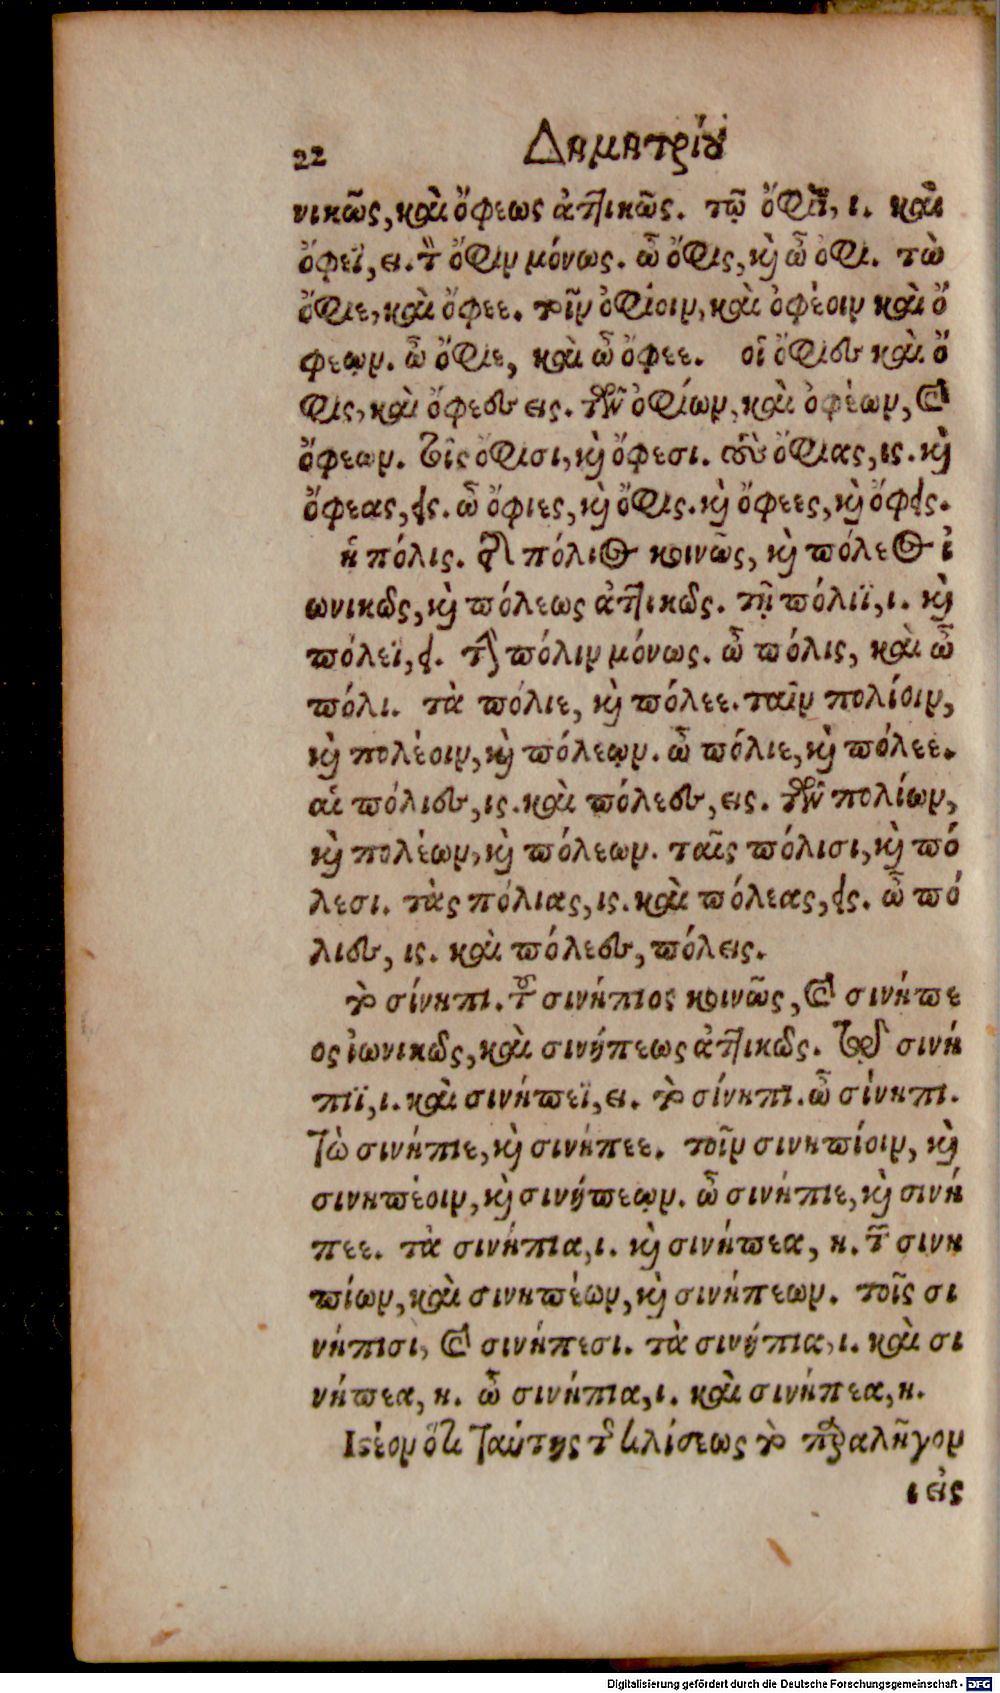 22 Δημητρίου
νικῶς, καὶ ὄφεως ἀττικῶς. τῷ ὄφιϊ, ι. καὶ
ὄφεϊ, ει. τὸν ὄφιν μόνως. ὦ ὄφις, καὶ ὦ ὄφι. τὼ
ὄφιε, καὶ ὄφεε. τοῖν ὀφίοιν, καὶ ὀφέοιν καὶ ὄ
φεῳν. ὦ ὄφιε, καὶ ὦ ὄφεε. οἱ ὄφιες καὶ ὄ
φις, καὶ ὄφεες εις. τῶν ὀφίων, καὶ ὀφέων, καὶ
ὄφεων. τοῖς ὄφισι, καὶ ὄφεσι. τοὺς ὄφιας, ις. καὶ
ὄφεας, εις. ὦ ὄφιες, καὶ ὄφις. καὶ ὄφεες, καὶ ὄφεις.
ἡ πόλις. τῆς πόλιος κοινῶς, καὶ πόλεος ἰ
ωνικῶς, καὶ πόλεως ἀττικῶς. τῇ πόλιϊ, ι. καὶ
πόλεϊ, ει. τὴν πόλιν μόνως. ὦ πόλις, καὶ ὦ
πόλι. τὰ πόλιε, καὶ πόλεε. ταῖν πολίοιν,
καὶ πολέοιν, καὶ πόλεῳν. ὦ πόλιε, καὶ πόλεε.
αἱ πόλιες, ις. καὶ πόλεες, εις. τῶν πολίων,
καὶ πολέων, καὶ πόλεων. ταῖς πόλισι, καὶ πό
λεσι. τὰς πόλιας, ις. καὶ πόλεας, εις. ὦ πό
λιες, ις. καὶ πόλεες, πόλεις.
τὸ σίνηπι. τοῦ σινήπιος κοινῶς, καὶ σινήπε
ος ἰωνικῶς, καὶ σινήπεως ἀττικῶς. τῷ σινή
πιϊ, ι. καὶ σινήπεϊ, ει. τὸ σίνηπι. ὦ σίνηπι.
τὼ σινήπιε, καὶ σινήπεε. τοῖν σινηπίοιν, καὶ
σινηπέοιν, καὶ σινήπεῳν. ὦ σινήπιε, καὶ σινή
πεε. τὰ σινήπια, ι. καὶ σινήπεα, η. τῶν σινη
πίων, καὶ σινηπέων, καὶ σινήπεων. τοῖς σι
νήπισι, καὶ σινήπεσι. τὰ σινήπια, ι. καὶ σι
νήπεα, η. ὦ σινήπια, ι. καὶ σινήπεα, η.
Ιστέον ὅτι ταύτης τῆς κλίσεως τὸ παραλῆγον
ι εἰς
Digitalisierung gefördert durch die Deutsche Forschungsgemeinschaft - DFG